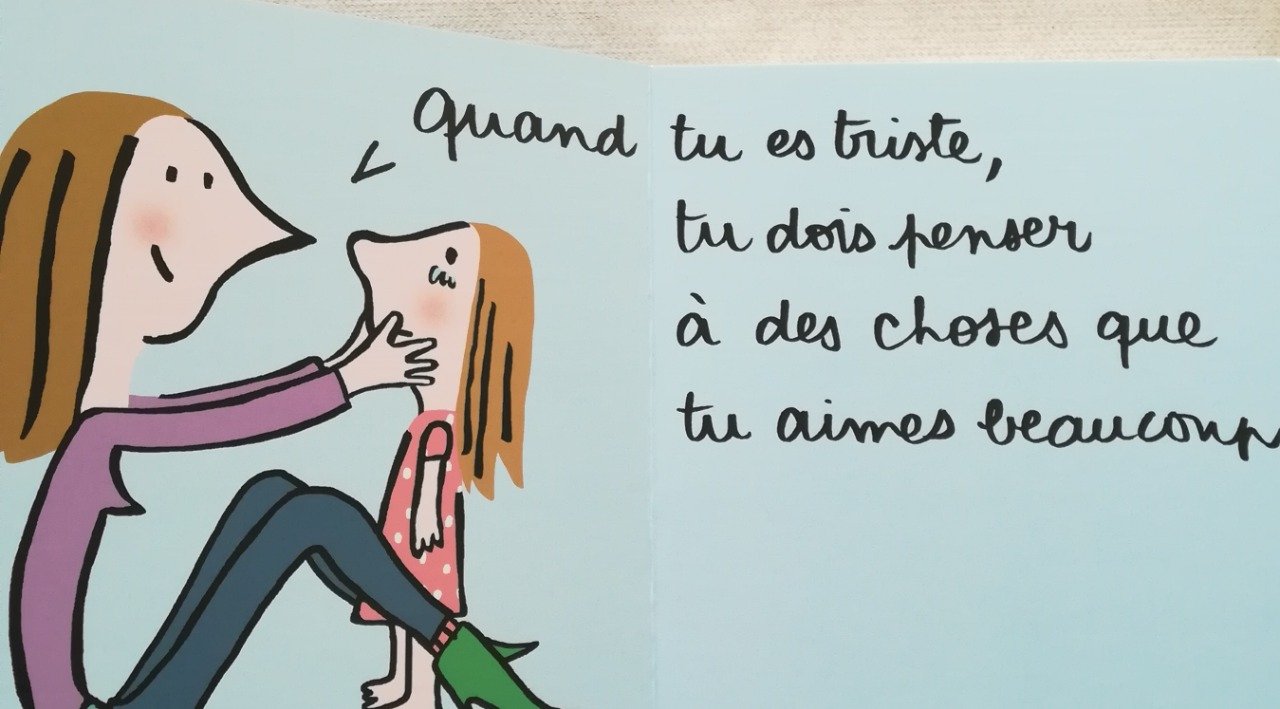 Quand tu es triste,
tu dois penser
à des choses que
tu aimes beaucoup